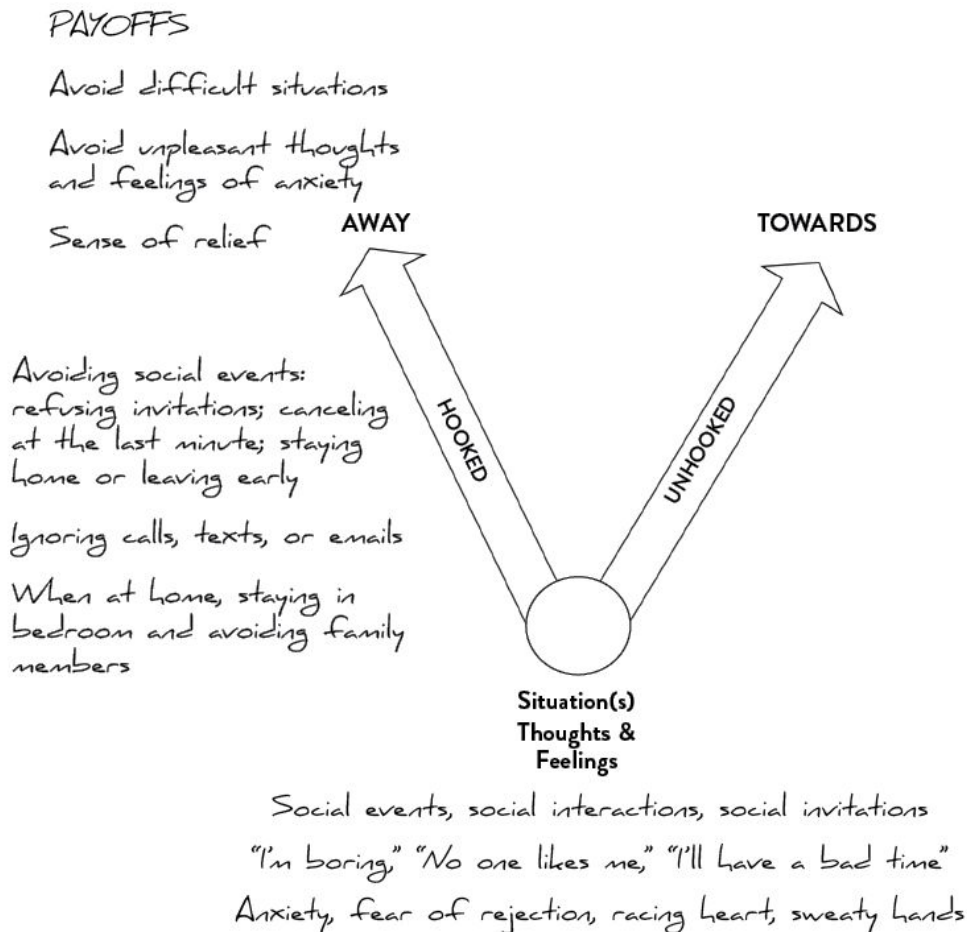 PAYOFFS
Avoid difficult situations
Avoid unpleasant thoughts
and feelings of anxiety
Sense of relief
AWAY
TOWARDS
Avoiding social events:
refusing invitations; canceling
at the last minute; staying
home or leaving early
Ignoring calls, texts, or emails
When at home, staying in
bedroom and avoiding family
members
HOOKED
UNHOOKED
Situation(s)
Thoughts &
Feelings
Social events, social interactions, social invitations
“I’m boring,” “No one likes me,” “I’ll have a bad time”
Anxiety, fear of rejection, racing heart, sweaty hands